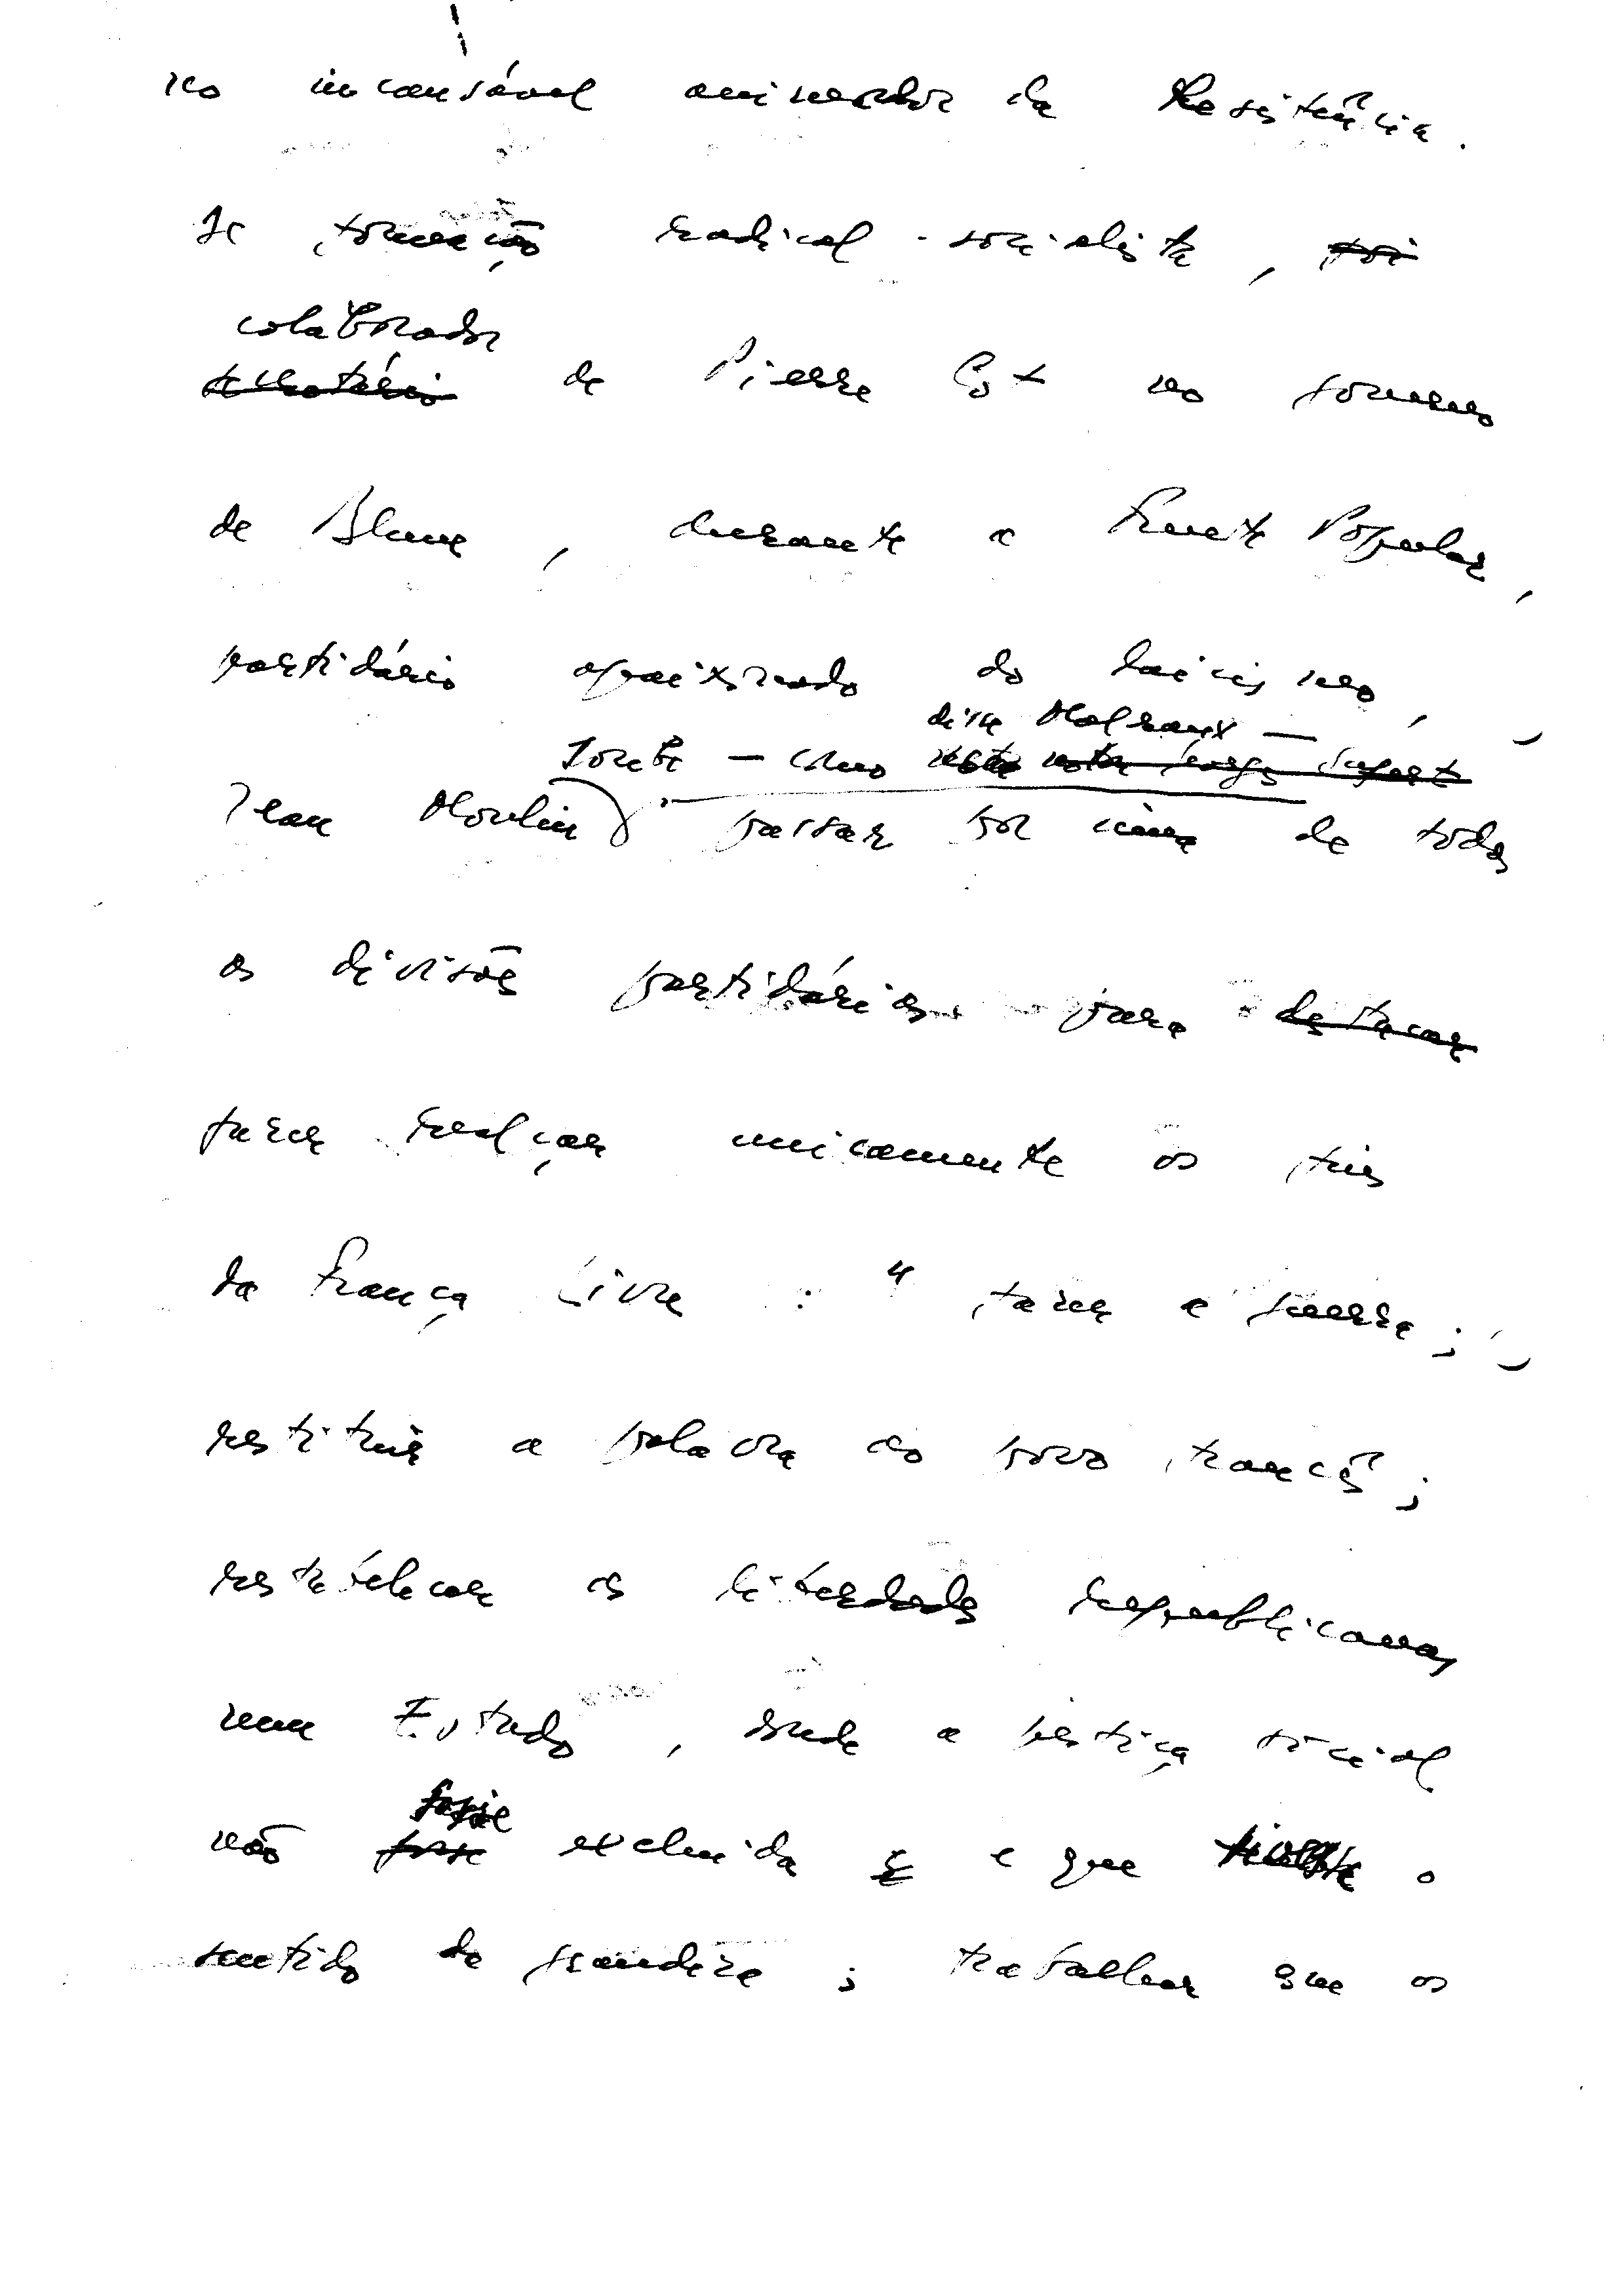 no incansável animador da Resistência.
De formação radical-socialista, foi
colaborador
de Pierre Cot no governo
de Blum, durante a Frente Popular,
partidário apaixonado do laicismo,
disse Malraux —
soube — como
Jean Moulin passar por cima de todas
as divisões partidárias para destacar
fazer realçar unicamente os fins
da França Livre : "fazer a guerra;
restituir a palavra ao povo francês;
restabelecer as liberdades republicanas
num Estado, onde a justiça social
não fosse excluída e e que tivesse o
sentido da grandeza; trabalhar com os